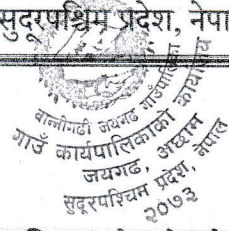 सुदूरपश्चिम प्रदेश, नेपा
बान्नीगढी जयगढ गाउँपालिका
गाउँ कार्यपालिकाको कार्यालय
जयगढ, अछाम
सुदूरपश्चिम प्रदेश, नेपाल
२०७३